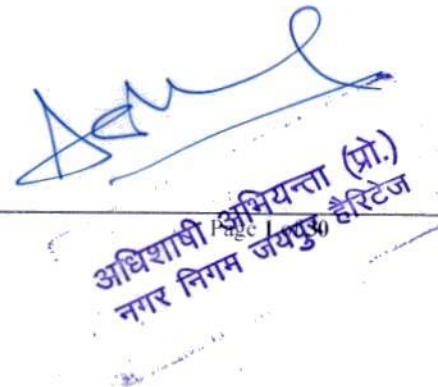 अधिशाषी अभियन्ता (प्रो.)
नगर निगम जयपुर हैरिटेज
Page 1